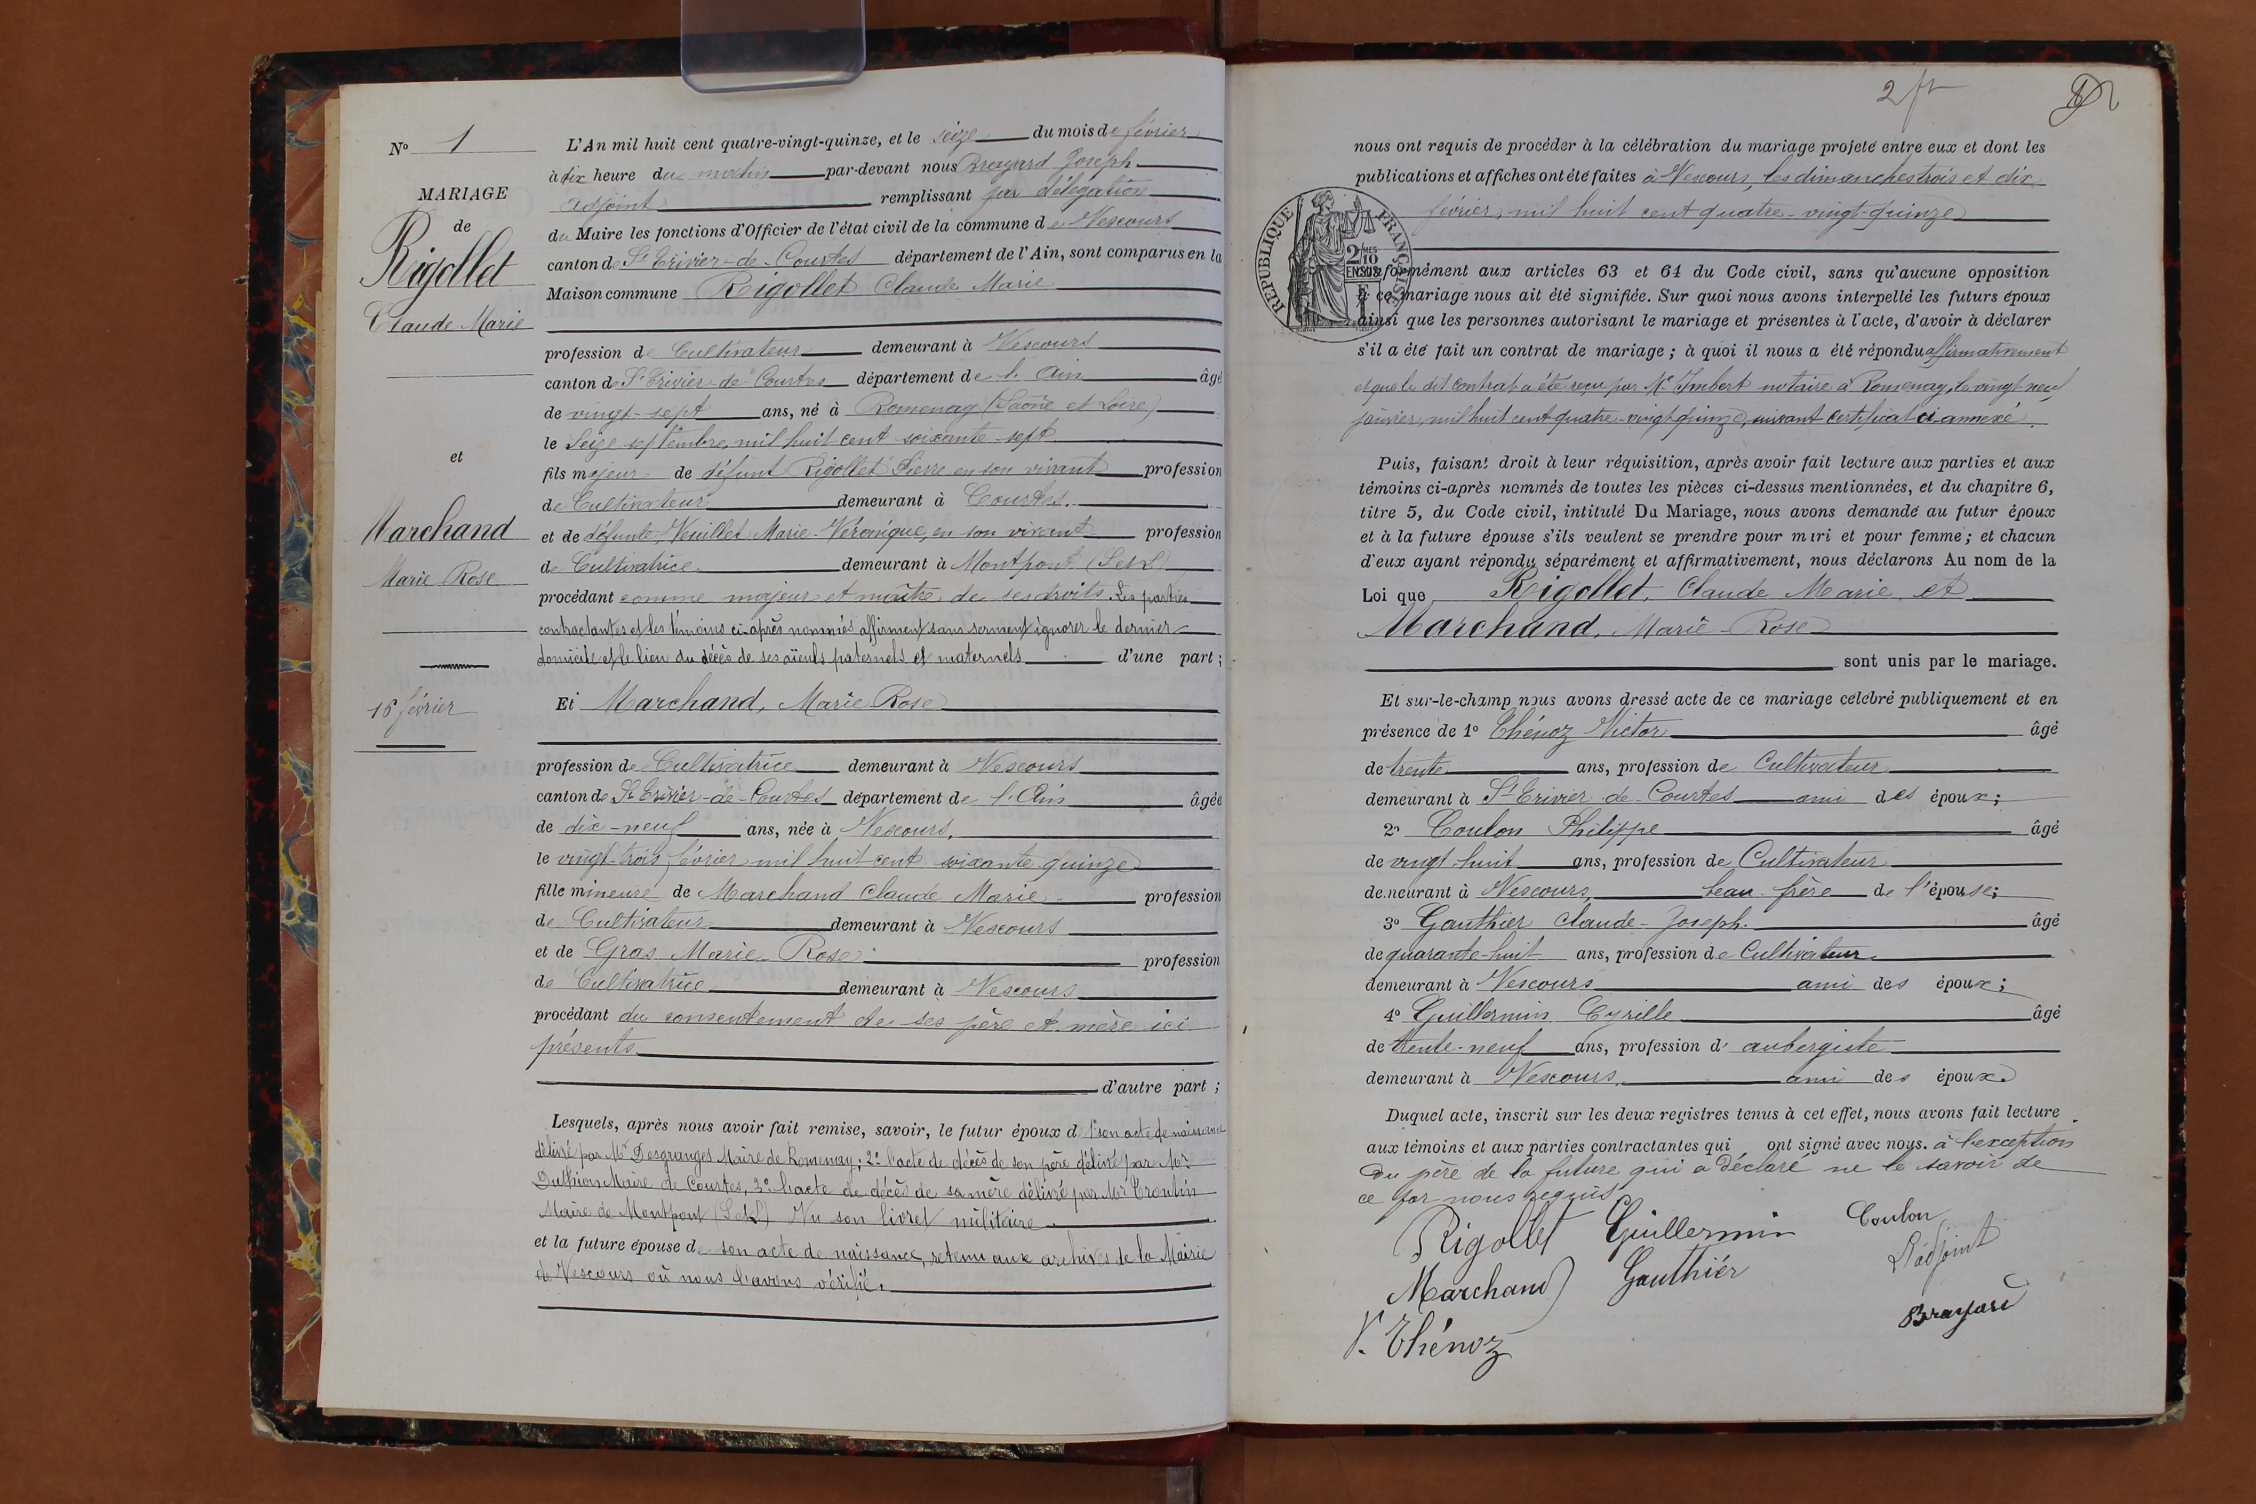 N° 1
MARIAGE
de
Rigollet
Claude Marie
et
Marchand
Marie Rose
16 février
L'An mil huit cent quatre-vingt-quinze, et le seize du mois de février
à dix heure du matin par-devant nous Brayard Joseph
adjoint remplissant par délégation
du Maire les fonctions d'Officier de l'état civil de la commune de Vescours
canton de St Trivier-de-Courtes département de l'Ain, sont comparus en la
Maison commune Rigollet Claude Marie
profession de Cultivateur demeurant à Vescours
canton de St Trivier-de-Courtes département de l'Ain âgé
de vingt-sept ans, né à Romenay (Saône et Loire)
le Seize septembre mil huit cent soixante-sept
fils majeur de défunt Rigollet Pierre en son vivant profession
de Cultivateur demeurant à Courtes
et de défunte Veuillet Marie-Véronique, en son vivant profession
de Cultivatrice demeurant à Montpont (S et L)
procédant comme majeur et maître de ses droits. Les parties
contractantes et les témoins ci-après nommés affirment sans serment ignorer le dernier
domicile et le lieu du décès de ses aïeuls paternels et maternels d'une part ;
Et Marchand, Marie Rose
profession de Cultivatrice demeurant à Vescours
canton de St Trivier-de-Courtes département de l'Ain âgée
de dix-neuf ans, née à Vescours,
le vingt-trois février mil huit cent soixante quinze
fille mineure de Marchand Claude Marie profession
de Cultivateur demeurant à Vescours
et de Gras Marie Rose profession
de Cultivatrice demeurant à Vescours
procédant du consentement de ses père et mère ici
présents
d'autre part ;
Lesquels, après nous avoir fait remise, savoir, le futur époux d 1° son acte de naissance
délivré par Mr Desgranges Maire de Romenay ; 2° l'acte de décès de son père délivré par Mr
Duthion Maire de Courtes, 3° l'acte de décès de sa mère délivré par Mr
Maire de Montpont (S et L) Vu son livret militaire
et la future épouse de son acte de naissance, retenu aux archives de la Mairie
de Vescours où nous l'avons vérifié.
2 ft
nous ont requis de procéder à la célébration du mariage projeté entre eux et dont les
publications et affiches ont été faites à Vescours, les dimanches trois et dix
février mil huit cent quatre-vingt-quinze
RÉPUBLIQUE FRANÇAISE
2/10
EN SUS
conformément aux articles 63 et 64 du Code civil, sans qu'aucune opposition
à ce mariage nous ait été signifiée. Sur quoi nous avons interpellé les futurs époux
ainsi que les personnes autorisant le mariage et présentes à l'acte, d'avoir à déclarer
s'il a été fait un contrat de mariage ; à quoi il nous a été répondu affirmativement
et que le dit contrat a été reçu par Me Imbert notaire à Romenay, le vingt neuf
janvier mil huit cent quatre-vingt quinze, suivant certificat ci-annexé.
Puis, faisant droit à leur réquisition, après avoir fait lecture aux parties et aux
témoins ci-après nommés de toutes les pièces ci-dessus mentionnées, et du chapitre 6,
titre 5, du Code civil, intitulé Du Mariage, nous avons demandé au futur époux
et à la future épouse s'ils veulent se prendre pour mari et pour femme ; et chacun
d'eux ayant répondu séparément et affirmativement, nous déclarons Au nom de la
Loi que Rigollet, Claude Marie et
Marchand, Marie-Rose
sont unis par le mariage.
Et sur-le-champ nous avons dressé acte de ce mariage célébré publiquement et en
présence de 1° Thénoz Victor âgé
de trente ans, profession de Cultivateur
demeurant à St Trivier-de-Courtes ami des époux ;
2° Coulon Philippe âgé
de vingt-huit ans, profession de Cultivateur
demeurant à Vescours, beau-frère de l'épouse ;
3° Gauthier Claude-Joseph âgé
de quarante-huit ans, profession de Cultivateur
demeurant à Vescours ami des époux ;
4° Guillermin Cyrille âgé
de trente-neuf ans, profession d' aubergiste
demeurant à Vescours, ami des époux.
Duquel acte, inscrit sur les deux registres tenus à cet effet, nous avons fait lecture
aux témoins et aux parties contractantes qui ont signé avec nous. à l'exception
du père de la future qui a déclaré ne le savoir de
ce par nous requis
Rigollet Guillermin Coulon
L'adjoint
Marchand Gauthiér
Brayard
V. Thénoz